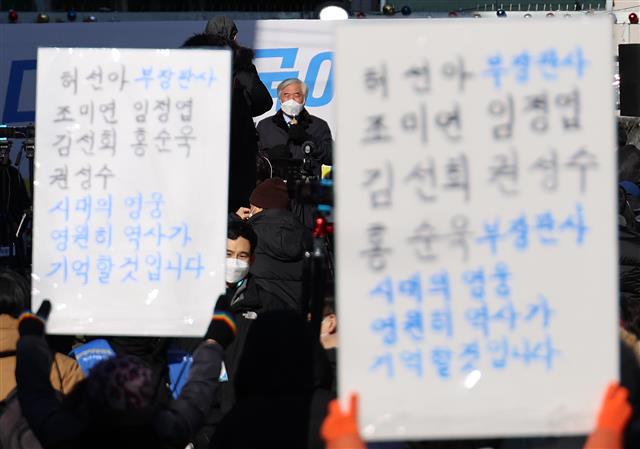 허선아 부장판사
조미연 임정엽
김선희 홍순욱
권성수
시대의 영웅
영원히 역사가
기억할것입니다
허선아 부장판사
조미연 임정엽
김선희 권성수
홍순욱 부장판사
시대의 영웅
영원히 역사가
기억할것입니다